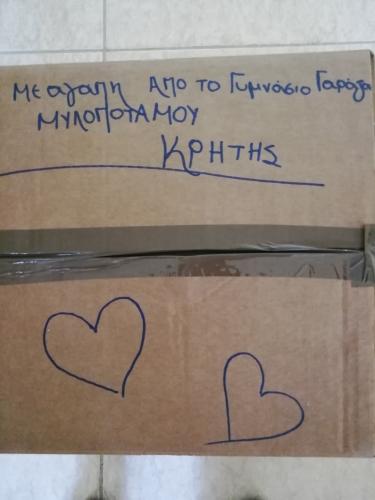 Με αγαπη ΑΠΟ ΤΟ Γυμνάσιο Γαράζου
ΜΥΛΟΠΟΤΑΜΟΥ
ΚΡΗΤΗΣ